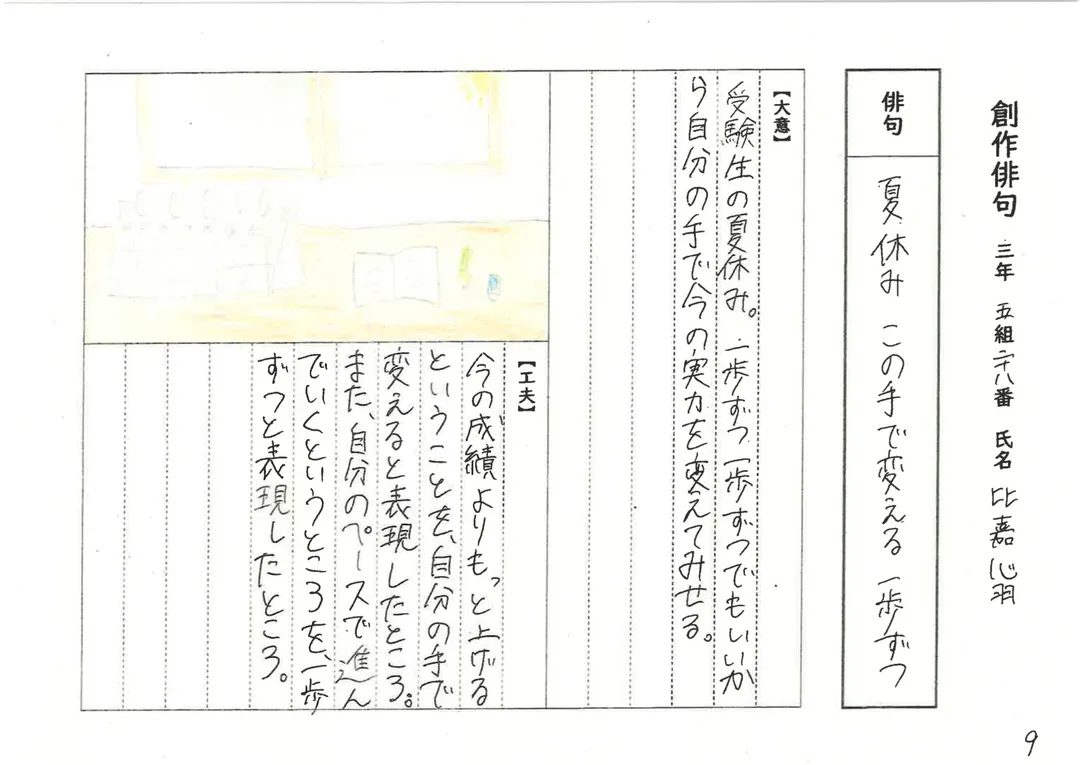 創作俳句 三年 五組 二十八番 氏名 比嘉心羽
俳句
夏休み この手で変える 一歩ずつ
【大意】
受験生の夏休み。一歩ずつ一歩ずつでもいいか
ら自分の手で今の実力を変えてみせる。
【工夫】
今の成績よりもっと上げる
ということを、自分の手で
変えると表現したところ。
また、自分のペースで進ん
でいくというところを、一歩
ずつと表現したところ。
9